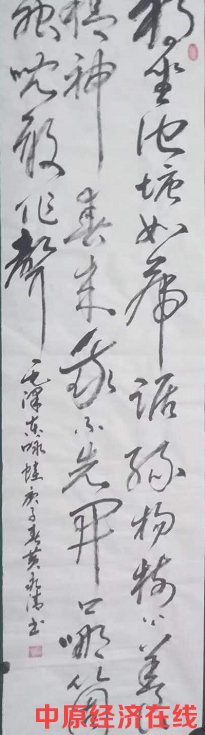 独坐池塘如虎踞绿杨树下养
精神春来我不先开口哪个
敢作声
毛泽东咏蛙庚子春黄书
中原经济在线